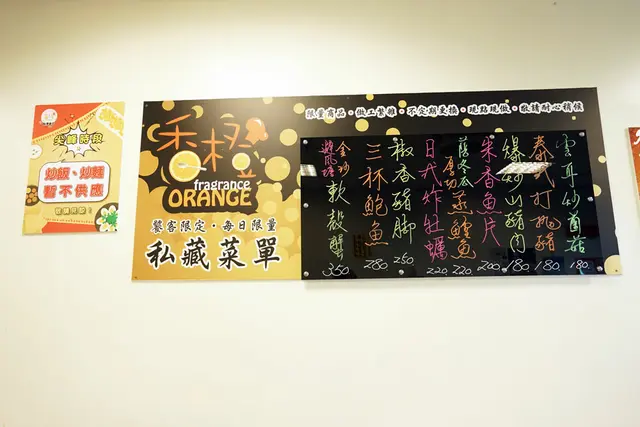 尖峰時段
炒飯、炒麵
暫不供應
香橙
fragrance
ORANGE
饕客限定・每日限量
私藏菜單
限量商品・做工繁雜・不定期更換・現點現做・敬請耐心稍候
雲耳炒菌菇
180
泰式打拋豬
180
緣炒山豬肉
180
朱香魚片
200
蔭冬瓜
厚切蒸鱈魚
220
日式炸牡蠣
220
椒香豬腳
250
三杯鮑魚
280
金沙
避風塘
軟殼蟹
350